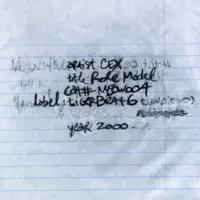 artist CEX
title Role Model
CAT# MEOW004
Label: tigerbeat6
year 2000